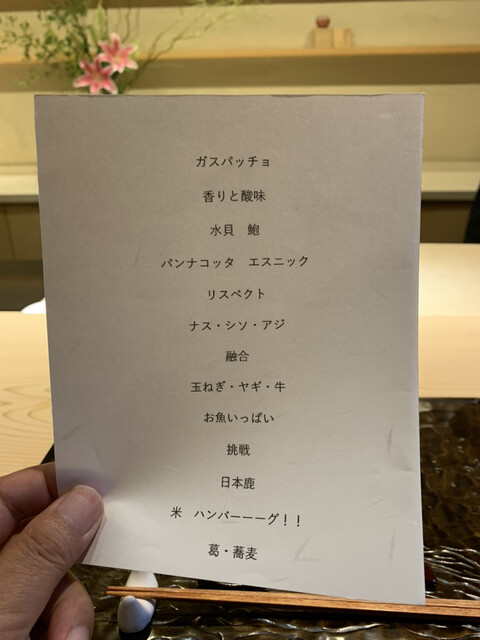 ガスパッチョ
香りと酸味
水貝　鮑
パンナコッタ　エスニック
リスペクト
ナス・シソ・アジ
融合
玉ねぎ・ヤギ・牛
お魚いっぱい
挑戦
日本鹿
米　ハンバーーーグ！！
葛・蕎麦